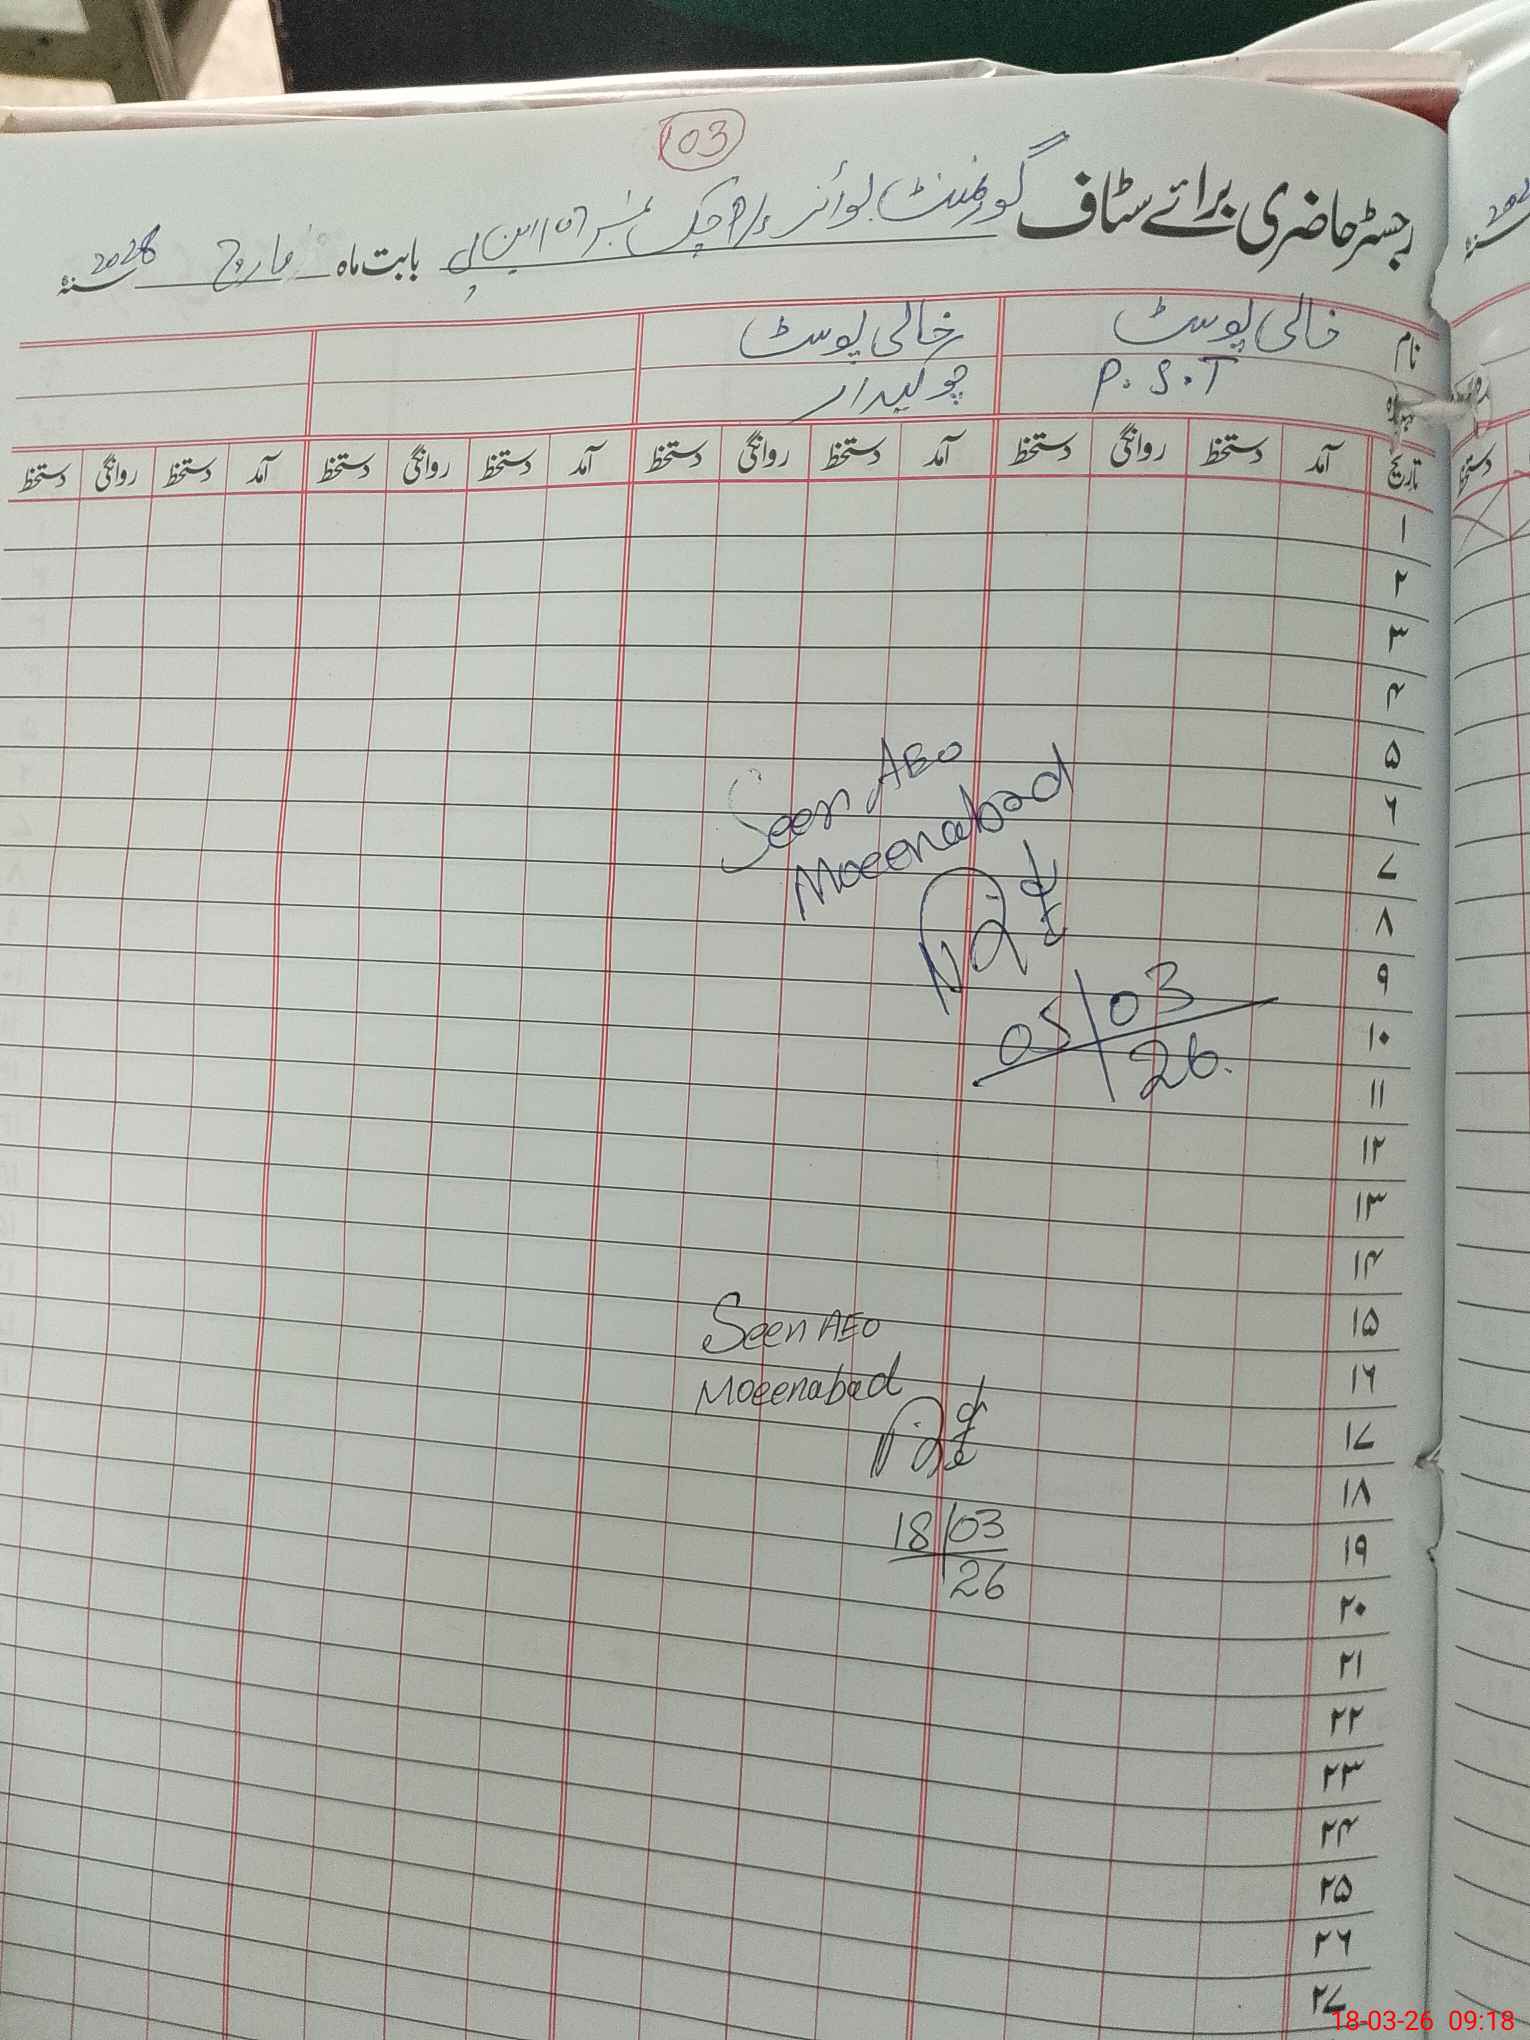 103
رجسٹر حاضری برائے سٹاف گورنمنٹ بوائز چک نمبر 107 این پی بابت ماہ مارچ 2026 سنہ
نام خالی پوسٹ خالی پوسٹ
عہدہ P.S.T چوکیدار
تاریخ آمد دستخط روانگی دستخط آمد دستخط روانگی دستخط آمد دستخط روانگی دستخط آمد دستخط روانگی دستخط
۱
۲
۳
۴
۵
۶
۷
۸
۹
۱۰
۱۱
۱۲
۱۳
۱۴
۱۵
۱۶
۱۷
۱۸
۱۹
۲۰
۲۱
۲۲
۲۳
۲۴
۲۵
۲۶
۲۷
Seen AEO
Moeenabad
05/03
26.
Seen AEO
Moeenabad
18/03
26
دستخط
18-03-26 09:18